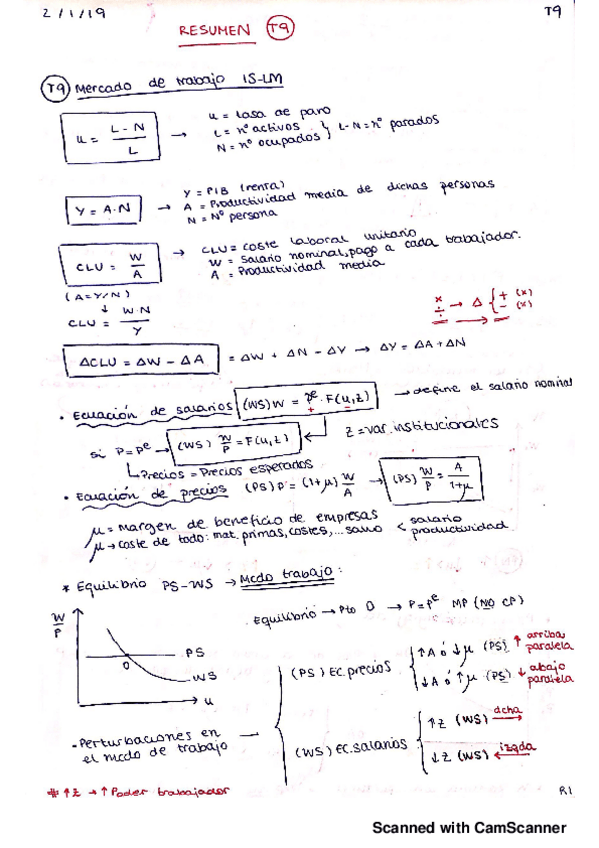 2/1/19
T9
RESUMEN T9
T9 Mercado de trabajo IS-LM
u = (L - N) / L → u = tasa de paro
L = nº activos
N = nº ocupados } L-N = nº parados
Y = A·N → Y = PIB (renta)
A = Productividad media de dichas personas
N = Nº persona
CLU = W/A → CLU = coste laboral unitario
W = salario nominal, pago a cada trabajador.
A = Productividad media
(A = Y/N)
↓
CLU = W·N / Y
x → Δ { + (x)
÷ → - (x)
ΔCLU = ΔW - ΔA = ΔW + ΔN - ΔY → ΔY = ΔA + ΔN
• Ecuación de salarios (WS) W = Pe · F(u,z) → define el salario nominal
+ -
si P = Pe → (WS) W/P = F(u,z) z = var. institucionales
↳ Precios = Precios esperados
• Ecuación de precios (PS) P = (1+μ) W/A → (PS) W/P = A / 1+μ
μ = margen de beneficio de empresas
μ → coste de todo: mat. primas, costes,... salvo < salario
productividad
* Equilibrio PS-WS → Mcdo trabajo:
Equilibrio → Pto 0 → P = Pe MP (NO CP)
W/P
PS
0
WS
u
- Perturbaciones en el mcdo de trabajo →
(PS) EC. precios { ↑A ó ↓μ (PS) ↑ arriba paralela
↓A ó ↑μ (PS) ↓ abajo paralela
(WS) EC. salarios { ↑z (WS) dcha →
↓z (WS) izqda ←
# ↑z → ↑ Poder trabajador
R1
Scanned with CamScanner